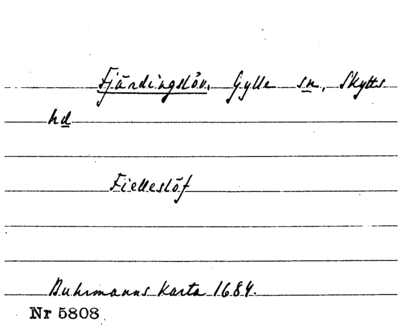 Fjärdingslöv. Gylle sn, Skytts
hd
Fielleslöf
Buhrmanns Karta 1684.
Nr 5808